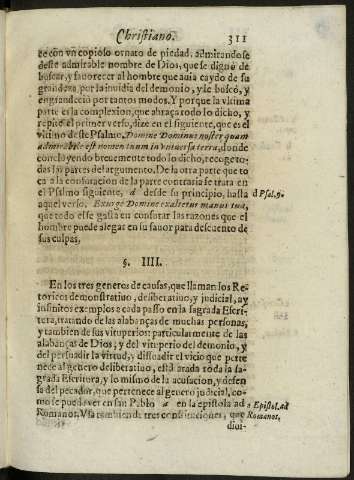 Christiano. 311
ce con vn copioso ornato de piedad, admirandose
deste admirable nombre de Dios, que se dignò de
buscar, y fauorecer al hombre que auia caydo de su
grandeza, por la inuidia del demonio, y le buscó, y
engrandeció por tantos modos. Y porque la vltima
parte es la complexion, que abraça todo lo dicho, y
repitió el primer verso, dize en el siguiente, que es el
vltimo deste Psalmo, Domine Dominus noster quam
admirabile est nomen tuum in vniuersa terra, donde
concluyendo breuemente todo lo dicho, recoge to-
das las partes del argumento. De la otra parte que to
ca a la confutacion de la parte contraria se trata en
el Psalmo siguiente, d desde su principio, hasta
d Psal. 9.
aquel verso, Exurge Domine exaltetur manus tua,
que todo esse gasta en confutar las razones que el
hombre puede alegar en su fauor para descuento de
sus culpas.
§. IIII.
En los tres generos de causas, que llaman los Re-
toricos demonstratiuo, deliberatiuo, y judicial, ay
infinitos exemplos a cada passo en la sagrada Escri-
tura, tratando de las alabanças de muchas personas,
y tambien de sus vituperios: particularmente de las
alabanças de Dios, y del vituperio del demonio, y
del persuadir la virtud, y dissuadir el vicio que perte
nece al genero deliberatiuo, està orada toda la sa-
grada Escritura, y lo mismo de la acusacion, y defen
sa del pecador, que pertenece al genero judicial, co-
mo se puede ver en san Pablo a en la epistola ad
a Epistol. ad
Romanos. Vsa tambien de tres constituciones, que
Romanos.
diui-